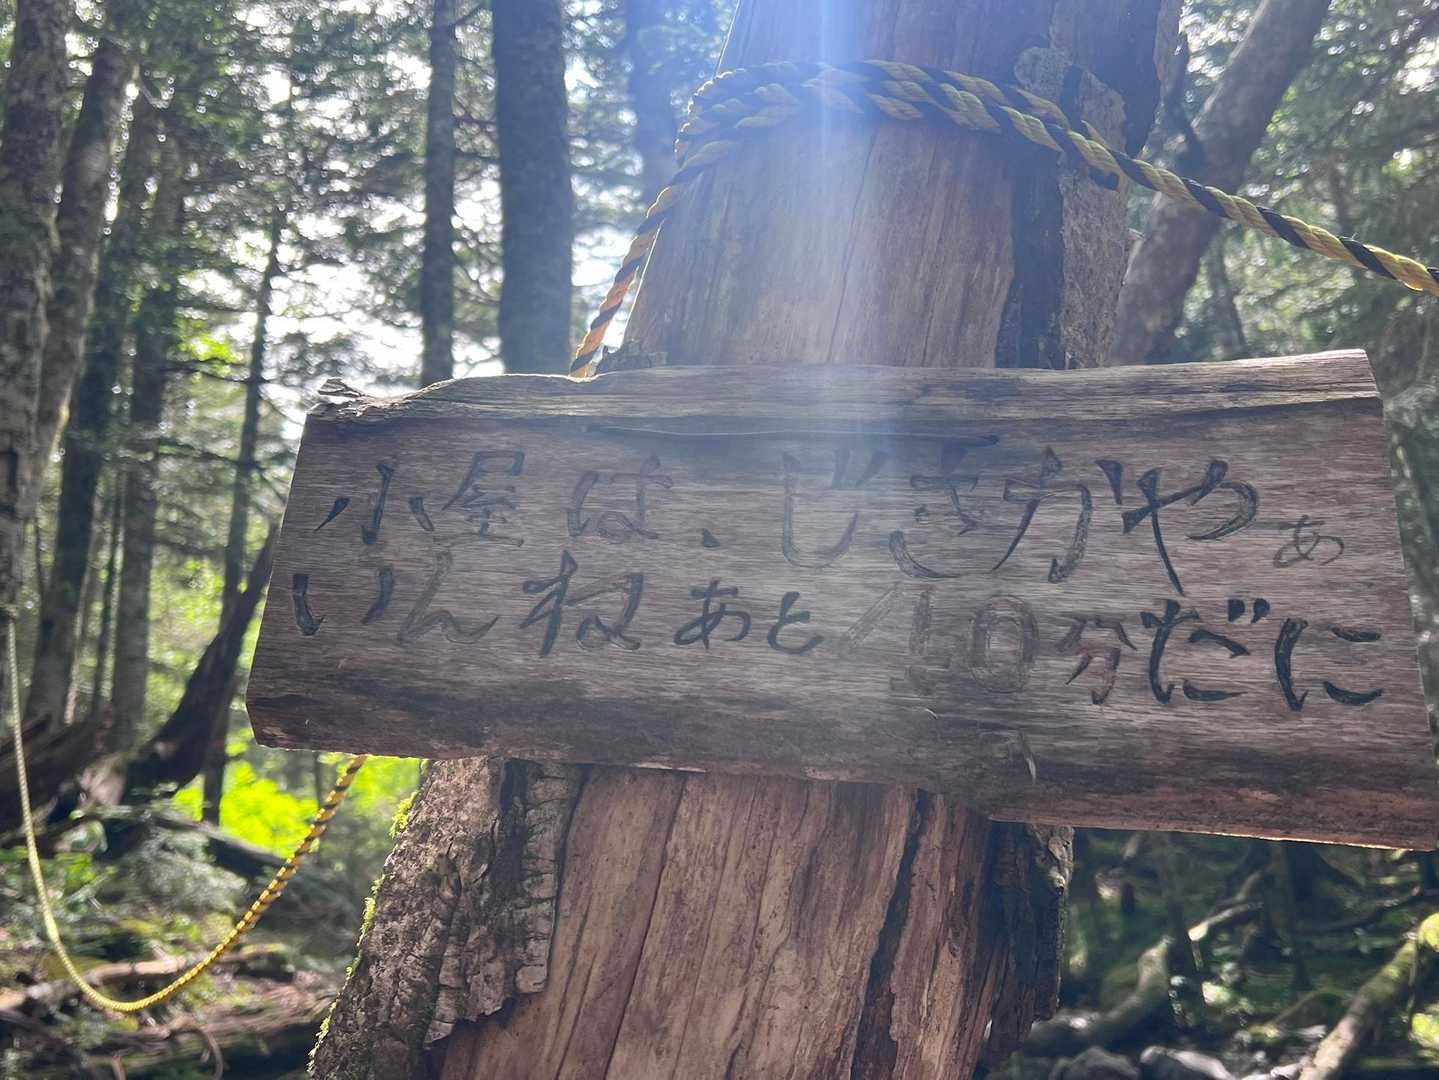 小屋は、じきがやぁ
いんねあと40分だに